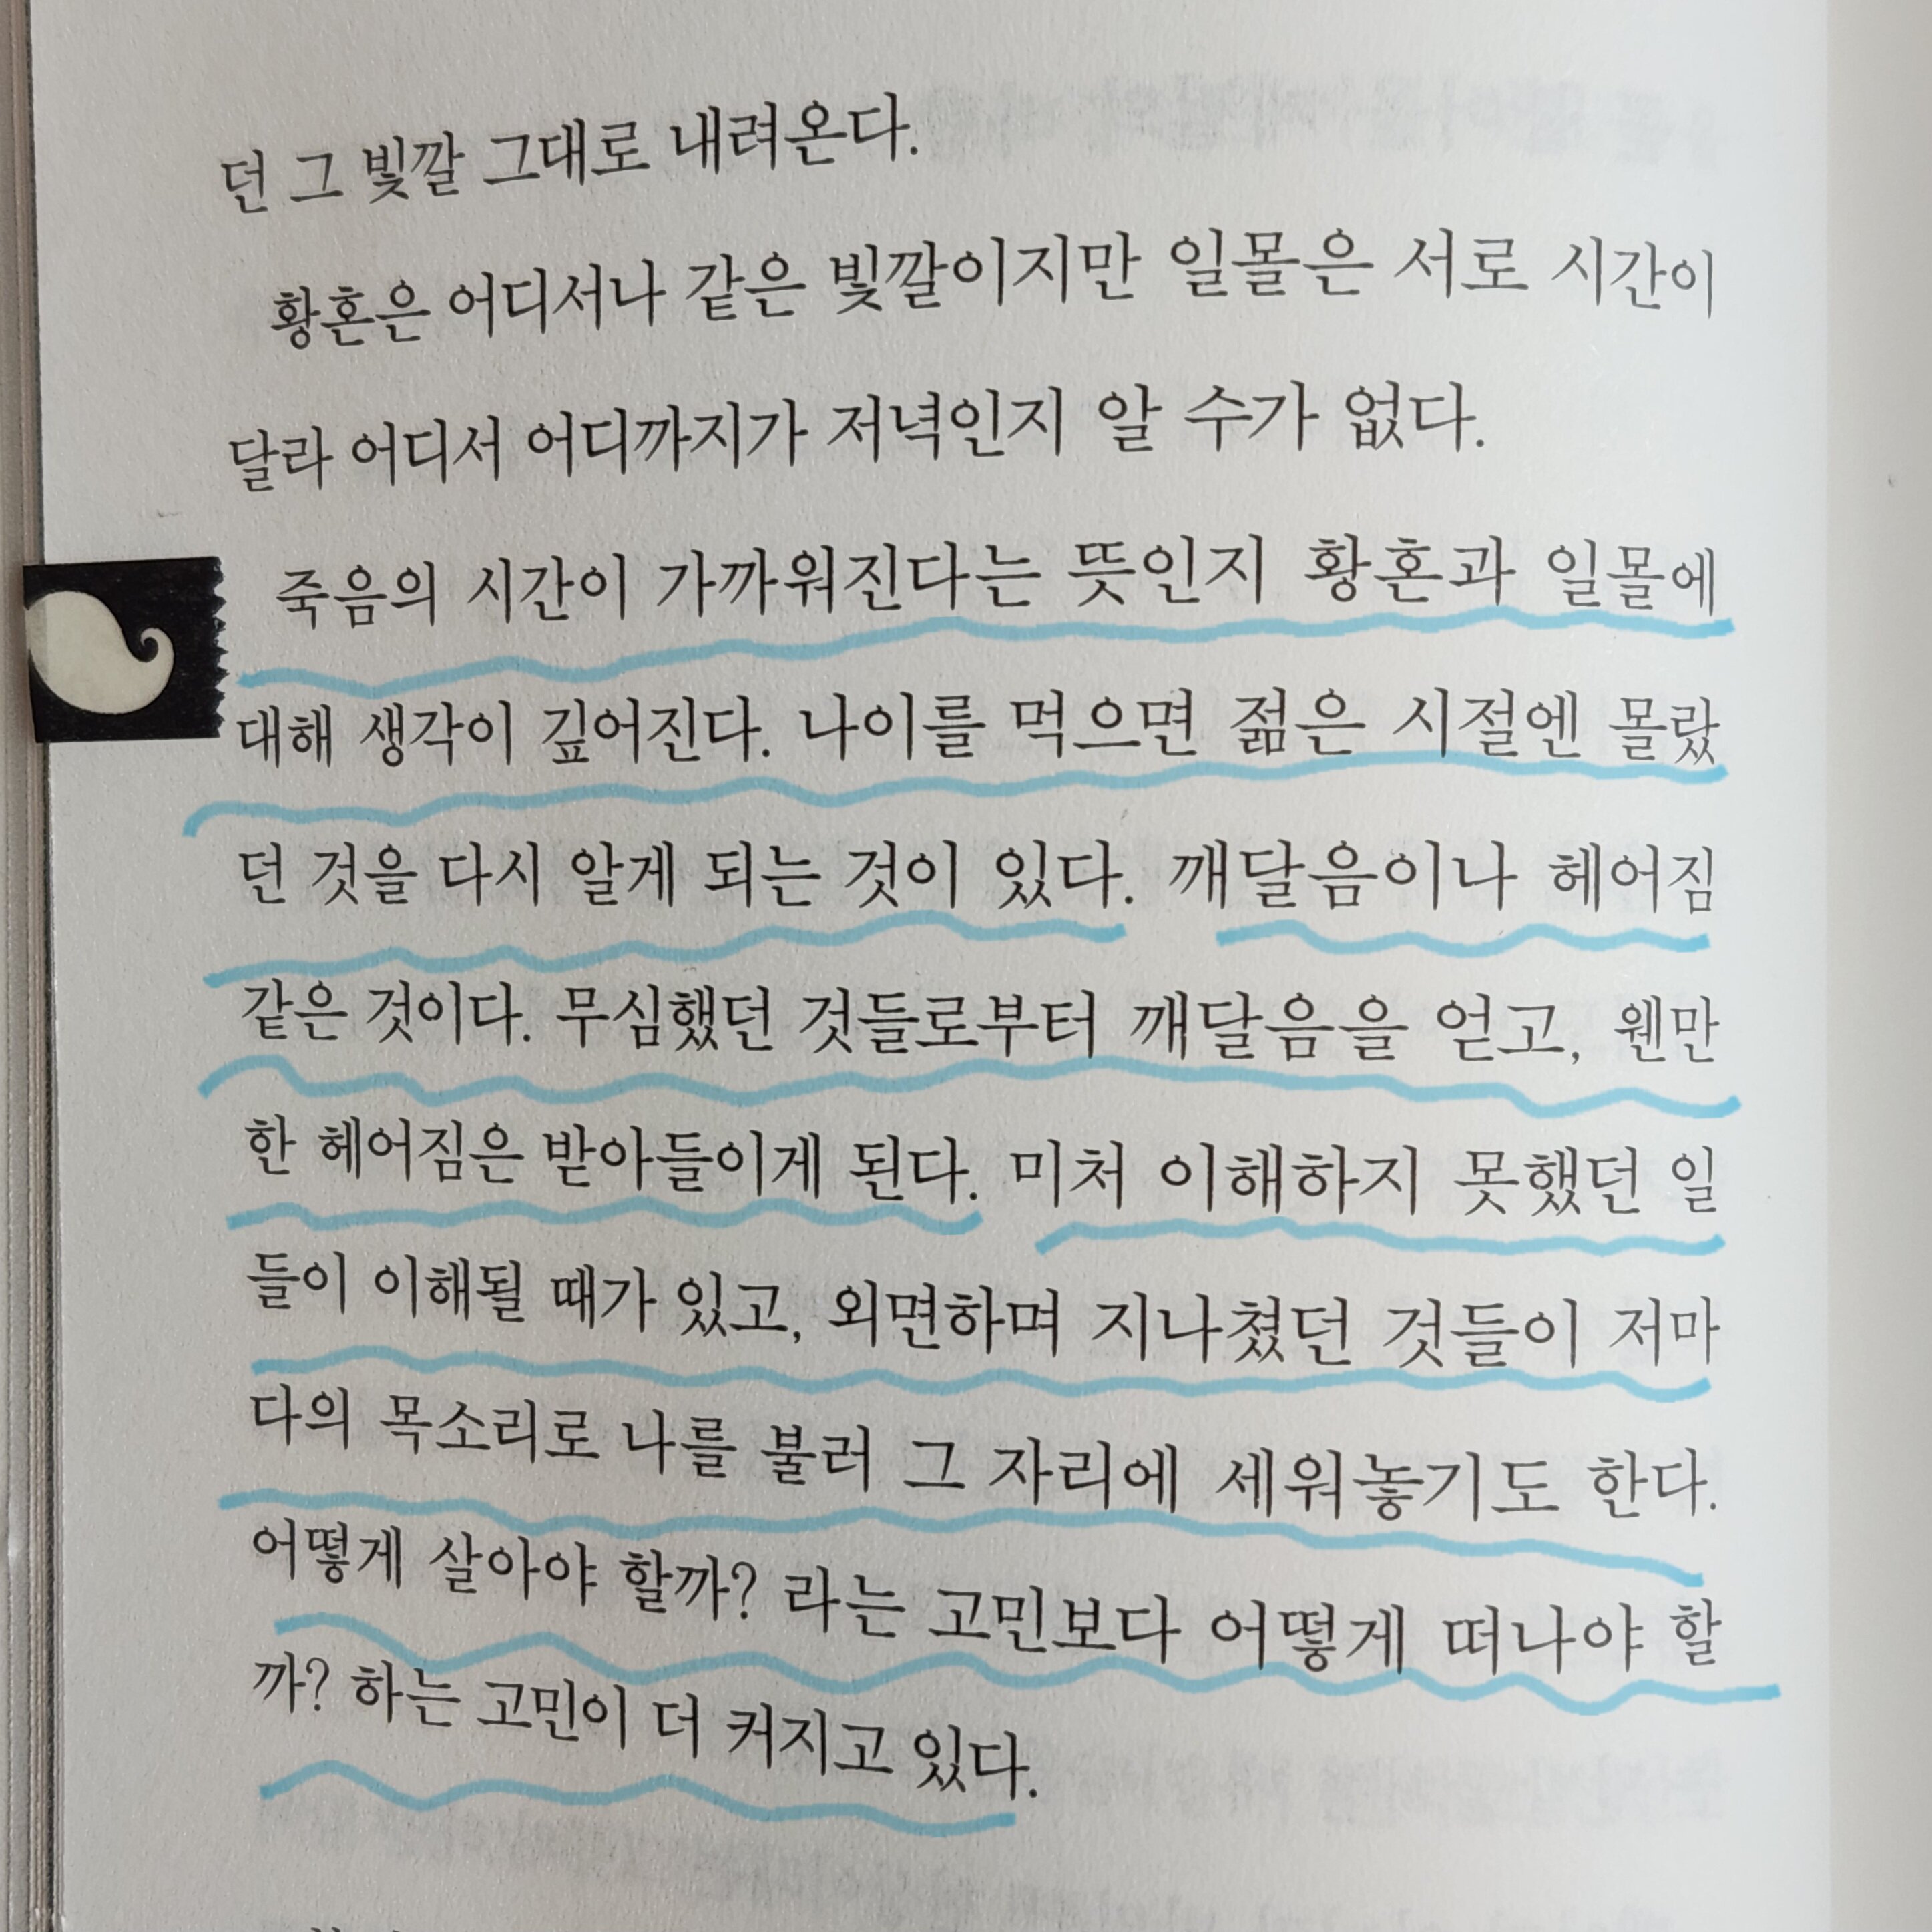 던 그 빛깔 그대로 내려온다.
황혼은 어디서나 같은 빛깔이지만 일몰은 서로 시간이
달라 어디서 어디까지가 저녁인지 알 수가 없다.
죽음의 시간이 가까워진다는 뜻인지 황혼과 일몰에
대해 생각이 깊어진다. 나이를 먹으면 젊은 시절엔 몰랐
던 것을 다시 알게 되는 것이 있다. 깨달음이나 헤어짐
같은 것이다. 무심했던 것들로부터 깨달음을 얻고, 웬만
한 헤어짐은 받아들이게 된다. 미처 이해하지 못했던 일
들이 이해될 때가 있고, 외면하며 지나쳤던 것들이 저마
다의 목소리로 나를 불러 그 자리에 세워놓기도 한다.
어떻게 살아야 할까? 라는 고민보다 어떻게 떠나야 할
까? 하는 고민이 더 커지고 있다.